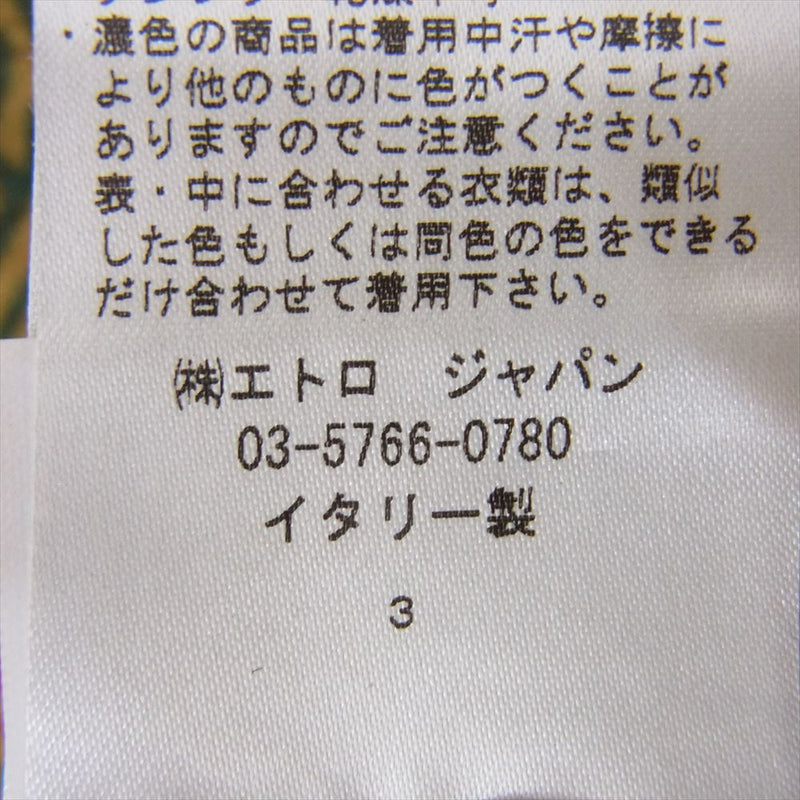 ・濃色の商品は着用中汗や摩擦に
より他のものに色がつくことが
ありますのでご注意ください。
表・中に合わせる衣類は、類似
した色もしくは同色の色をできる
だけ合わせて着用下さい。
㈱エトロ　ジャパン
03-5766-0780
イタリー製
3